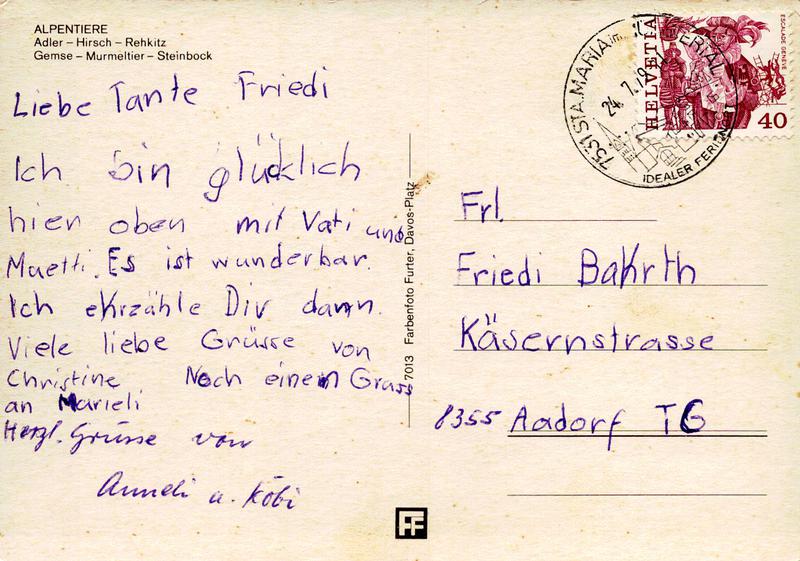 ALPENTIERE
Adler – Hirsch – Rehkitz
Gemse – Murmeltier – Steinbock
Liebe Tante Friedi
Ich bin glücklich
hier oben mit Vati und
Muetti. Es ist wunderbar.
Ich ekrzähle Dir dann.
Viele liebe Grüsse von
Christine Noch einen Gruss
an Marieli
Herzl. Grüsse von
Anneli u. Köbi
7013 Farbenfoto Furter, Davos-Platz
FF
7531 STA. MARIA im
24. 7. 79
IDEALER
HELVETIA
ESCALADE GENÈVE
40
Frl.
Friedi Bakrth
Käsernstrasse
8355 Aadorf TG